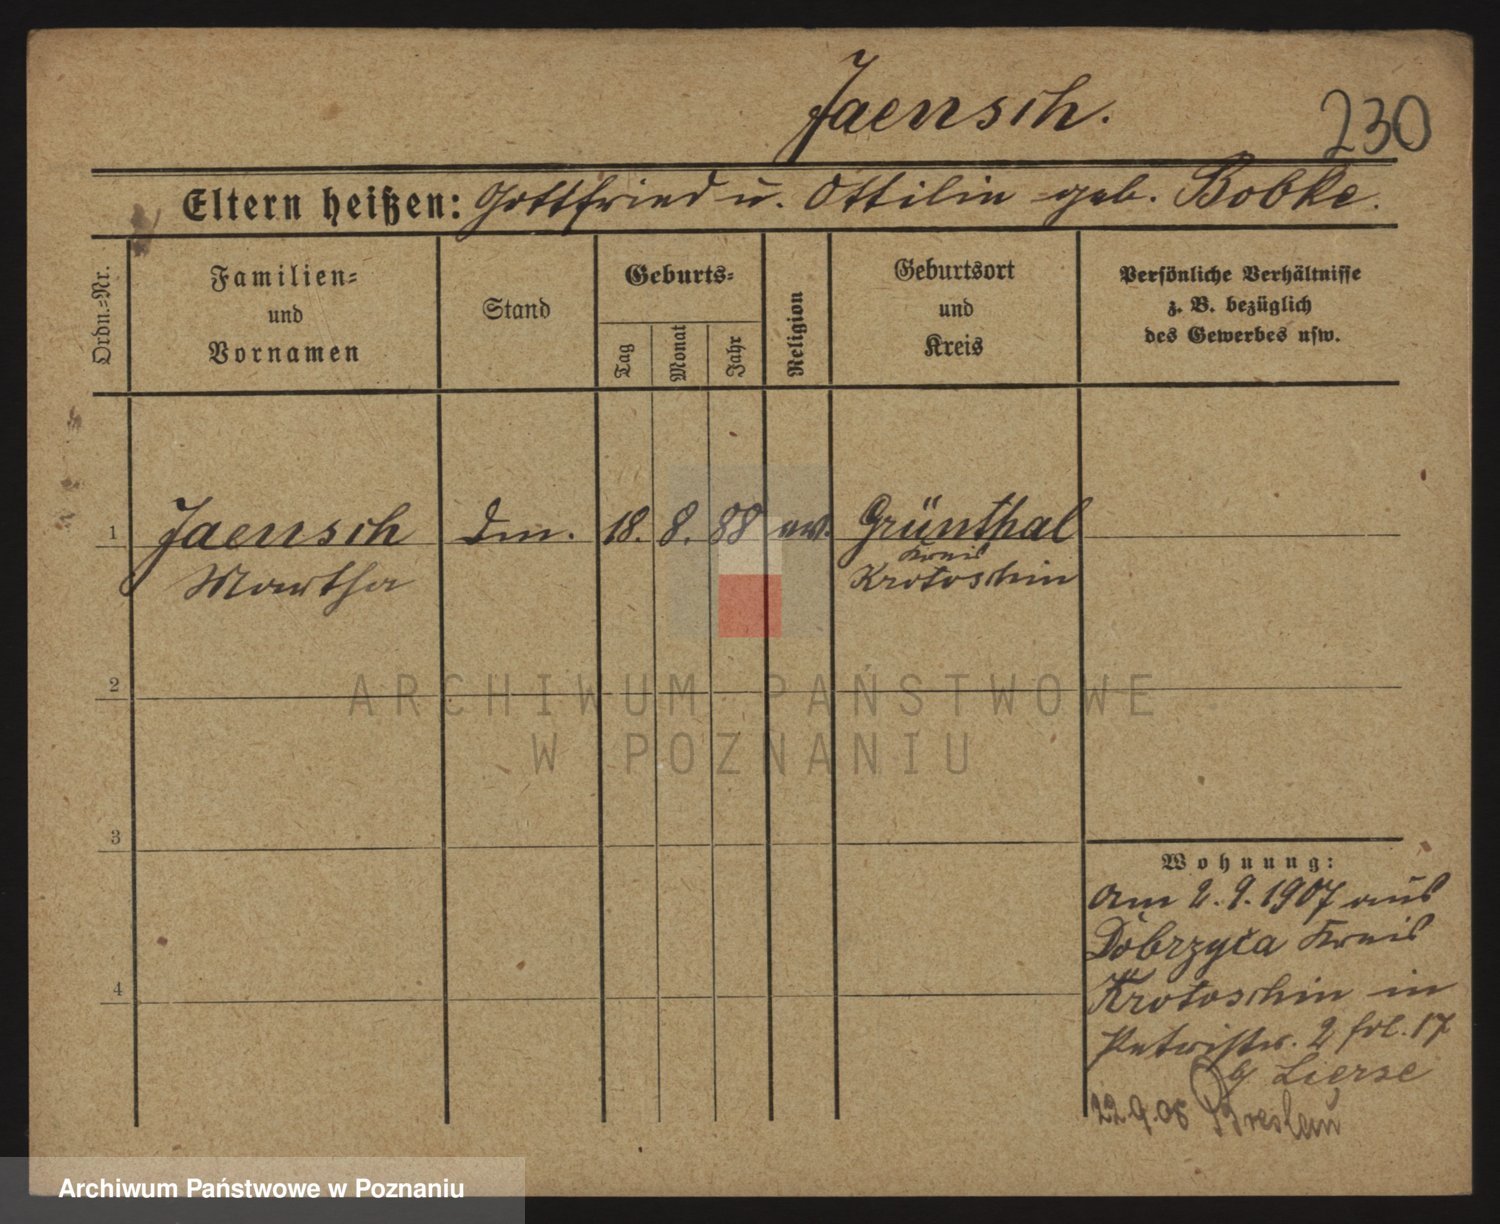 Jaensch.
230
Eltern heißen: Gottfried u. Ottilie geb. Bobke.
Ordn.=Nr.
Familien=
und
Vornamen
Stand
Geburts=
Tag
Monat
Jahr
Religion
Geburtsort
und
Kreis
Persönliche Verhältnisse
z. B. bezüglich
des Gewerbes usw.
1
Jaensch
Martha
18. 8. 88 ev.
Grünthal
Kreis
Krotoschin
2
3
4
Wohnung:
Am 2. 9. 1907 aus
Dobrzyca Kreis
Krotoschin in
Petristr. 2
Lierse
22.9.08 Breslau
ARCHIWUM PAŃSTWOWE
W POZNANIU
Archiwum Państwowe w Poznaniu